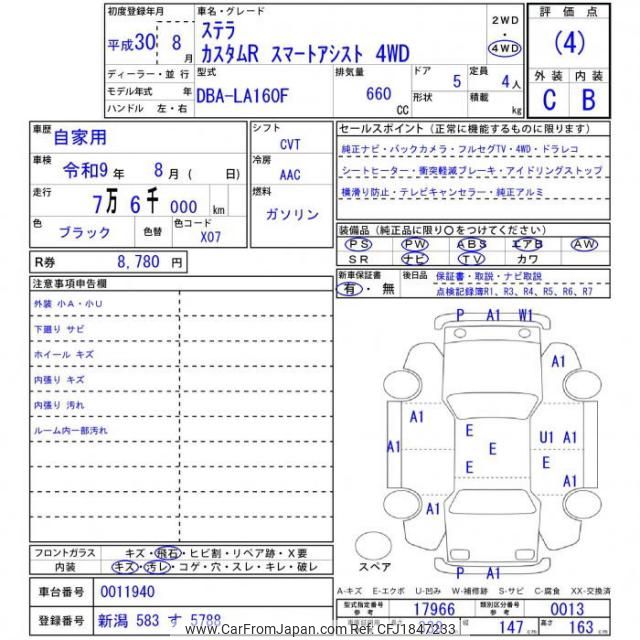 初度登録年月
平成30 8月
車名・グレード
ステラ
カスタムR スマートアシスト 4WD
2WD
・
4WD
評価点
(4)
外装 内装
C B
ディーラー・並行
モデル年式 年
ハンドル 左・右
型式
DBA-LA160F
排気量
660
cc
ドア 5
形状
定員 4人
積載 kg
車歴
自家用
車検
令和9年 8月 ( 日)
走行
7万 6千 000 km
色
ブラック
色替
色コード
X07
シフト
CVT
冷房
AAC
燃料
ガソリン
R券 8,780 円
セールスポイント (正常に機能するものに限ります)
純正ナビ・バックカメラ・フルセグTV・4WD・ドラレコ
シートヒーター・衝突軽減ブレーキ・アイドリングストップ
横滑り防止・テレビキャンセラー・純正アルミ
装備品 (純正品に限り○をつけてください)
PS PW ABS エアB AW
SR ナビ TV カワ
新車保証書
有・無
後日品
保証書・取説・ナビ取説
点検記録簿R1、R3、R4、R5、R6、R7
注意事項申告欄
外装 小A・小U
下廻り サビ
ホイール キズ
内張り キズ
内張り 汚れ
ルーム内一部汚れ
P A1 W1
A1
A1 A1
A1
E
E
U1 A1
E
E
A1
A1
P A1
スペア
フロントガラス
キズ・飛石・ヒビ割・リペア跡・X要
内装
キズ・汚レ・コゲ・穴・スレ・キレ・破レ
A-キズ E-エクボ U-凹み W-補修跡 S-サビ C-腐食 XX-交換済
車台番号 0011940
登録番号 新潟 583 す 5788
型式指定番号 17966
類別区分番号 0013
長さ
147
高さ 163
www.CarFromJapan.com Ref:CFJ1847233